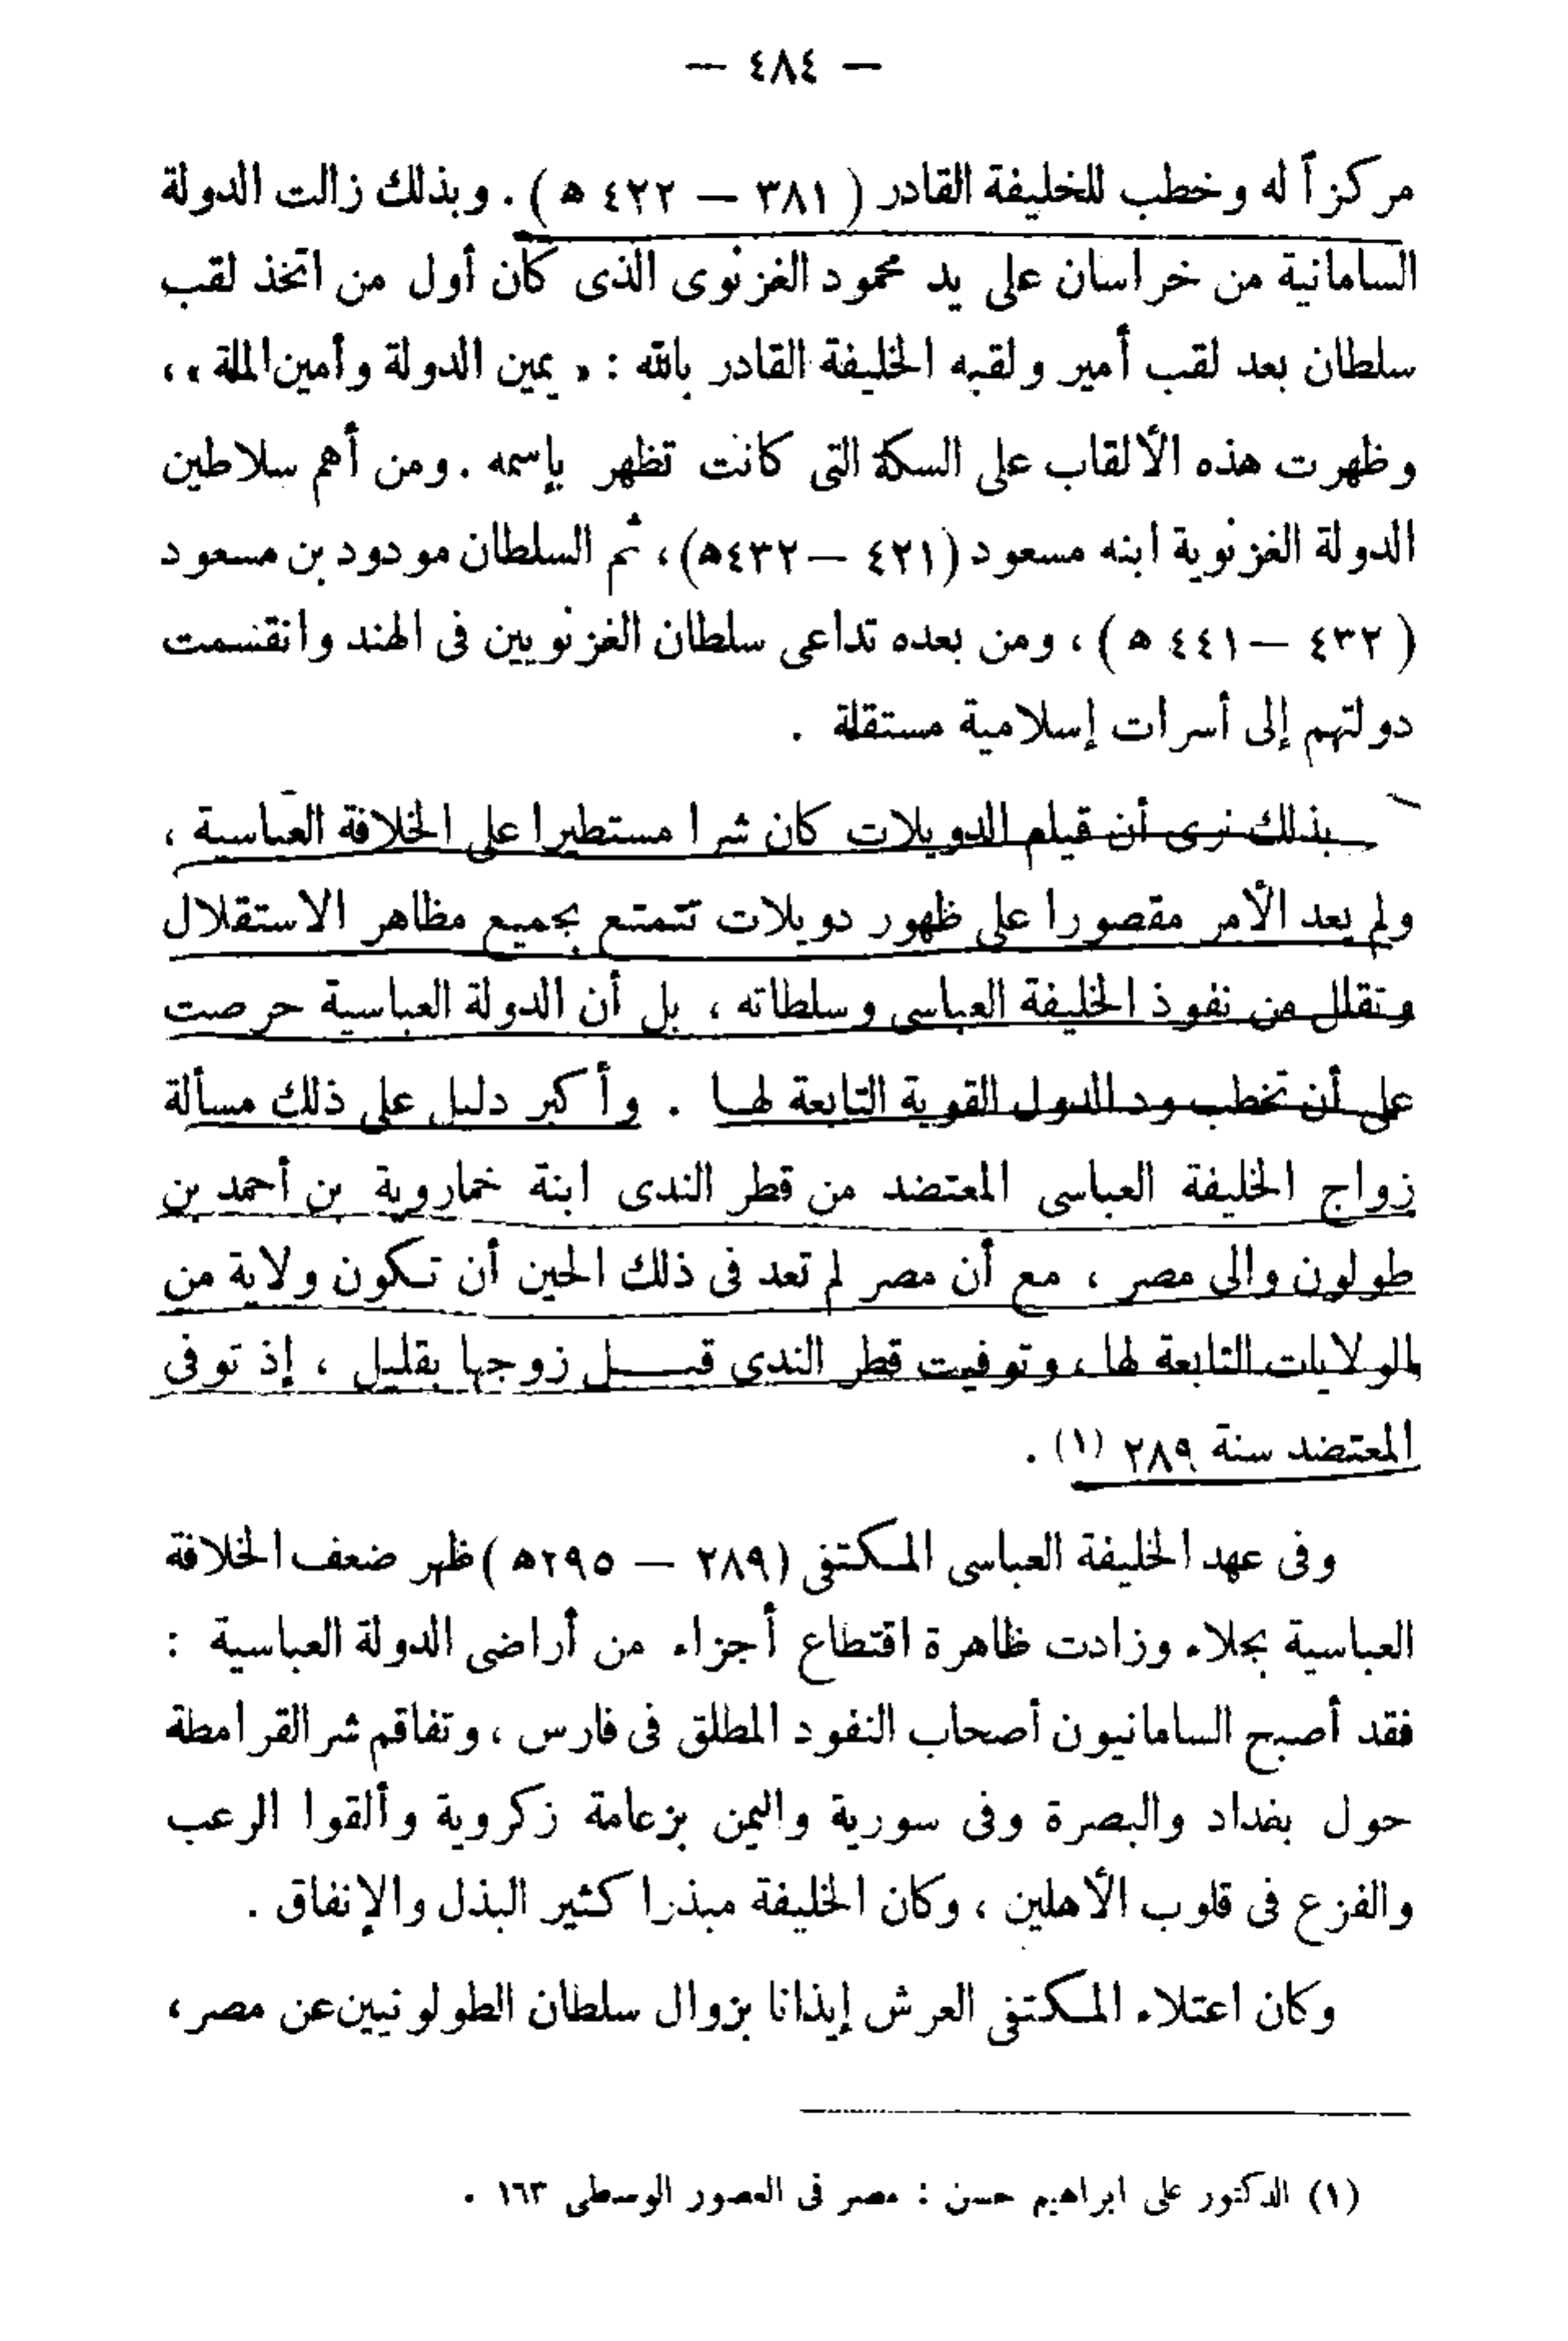 — ٤٨٤ —
مركزآ له وخطب للخليفة القادر ( ٣٨١ — ٤٢٢ ه ) . وبذلك زالت الدولة
السامانية من خراسان على يد محمود الغزنوى الذى كان أول من اتخذ لقب
سلطان بعد لقب أمير ولقبه الخليفة القادر بالله : « يمين الدولة وأمين الملة » ،
وظهرت هذه الألقاب على السكة التى كانت تظهر بإسمه . ومن أهم سلاطين
الدولة الغزنوية ابنه مسعود (٤٢١ — ٤٣٢ه) ، ثم السلطان مودود بن مسعود
( ٤٣٢ — ٤٤١ ه ) ، ومن بعده تداعى سلطان الغزنويين فى الهند وانقسمت
دولتهم إلى أسرات إسلامية مستقلة .
بذلك نرى أن قيام الدويلات كان شرا مستطيرا على الخلافة العباسية ،
ولم يعد الأمر مقصورا على ظهور دويلات تتمتع بجميع مظاهر الاستقلال
وتقلل من نفوذ الخليفة العباسى وسلطاته ، بل أن الدولة العباسية حرصت
على أن تخطب ود الدول القوية التابعة لها . وأكبر دليل على ذلك مسألة
زواج الخليفة العباسى المعتضد من قطر الندى ابنة خمارويه بن أحمد بن
طولون والى مصر ، مع أن مصر لم تعد فى ذلك الحين أن تكون ولاية من
الولايات التابعة لها ، وتوفيت قطر الندى قبــل زوجها بقليل ، إذ توفى
المعتضد سنة ٢٨٩ (١) .
وفى عهد الخليفة العباسى المكتفى (٢٨٩ — ٢٩٥ه) ظهر ضعف الخلافة
العباسية بجلاء وزادت ظاهرة اقتطاع أجزاء من أراضى الدولة العباسية :
فقد أصبح السامانيون أصحاب النفود المطلق فى فارس ، وتفاقم شر القرامطة
حول بغداد والبصرة وفى سورية واليمن بزعامة زكروية وألقوا الرعب
والفزع فى قلوب الأهلين ، وكان الخليفة مبذرا كثير البذل والإنفاق .
وكان اعتلاء المكتفى العرش إيذانا بزوال سلطان الطولونيين عن مصر ،
(١) الدكتور على ابراهيم حسن : مصر فى العصور الوسطى ١٦٣ .